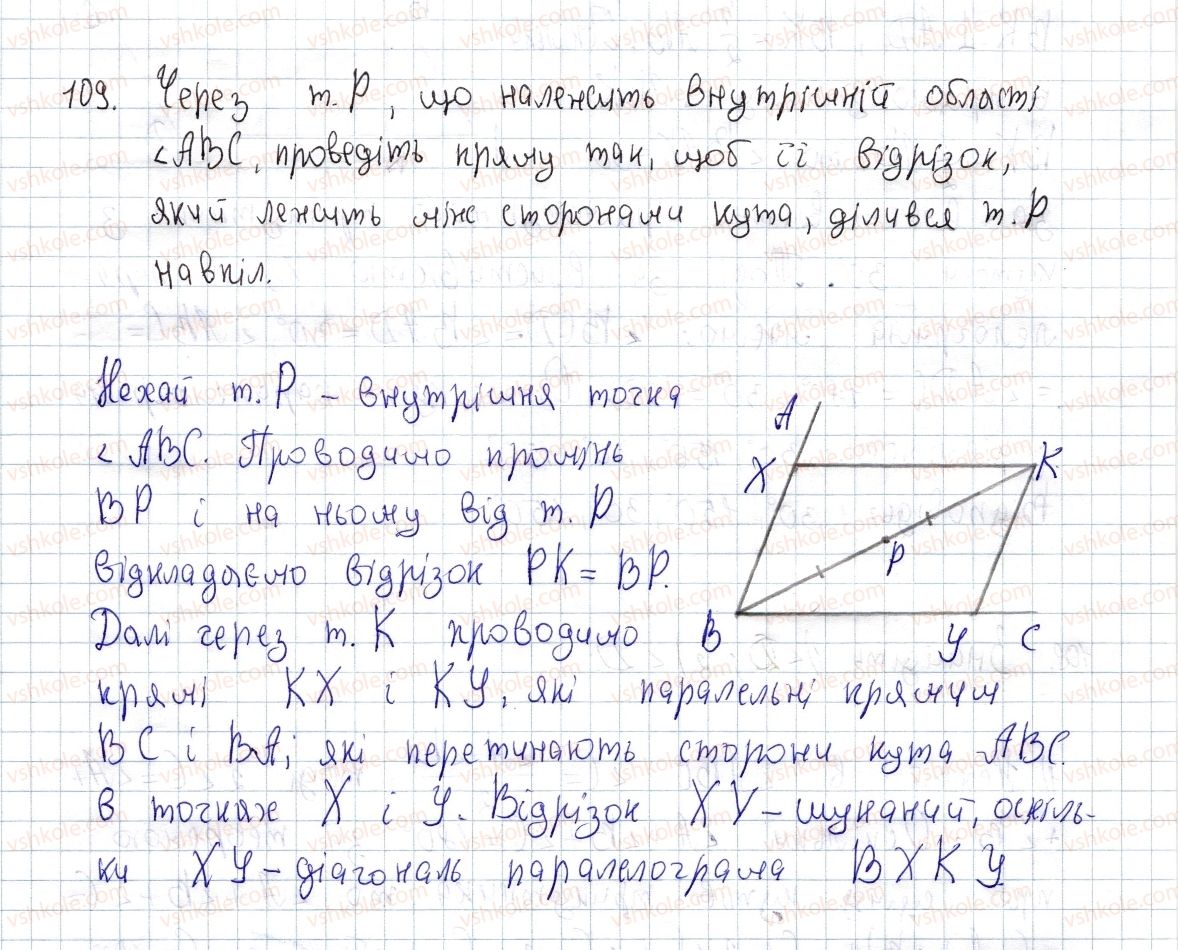 109. Через т. Р, що належить внутрішній області
∠ABC, проведіть пряму так, щоб її відрізок,
який лежить між сторонами кута, ділився т. Р
навпіл.
Нехай т. Р – внутрішня точка
∠ABC. Проводимо промінь
BP і на ньому від т. Р
відкладаємо відрізок PK = BP.
Далі через т. K проводимо
прямі KX і KY, які паралельні прямим
BC і BA, які перетинають сторони кута ABC
в точках X і Y. Відрізок XY – шуканий, оскіль-
ки XY – діагональ паралелограма BXKY
A
X
K
P
B
Y
C